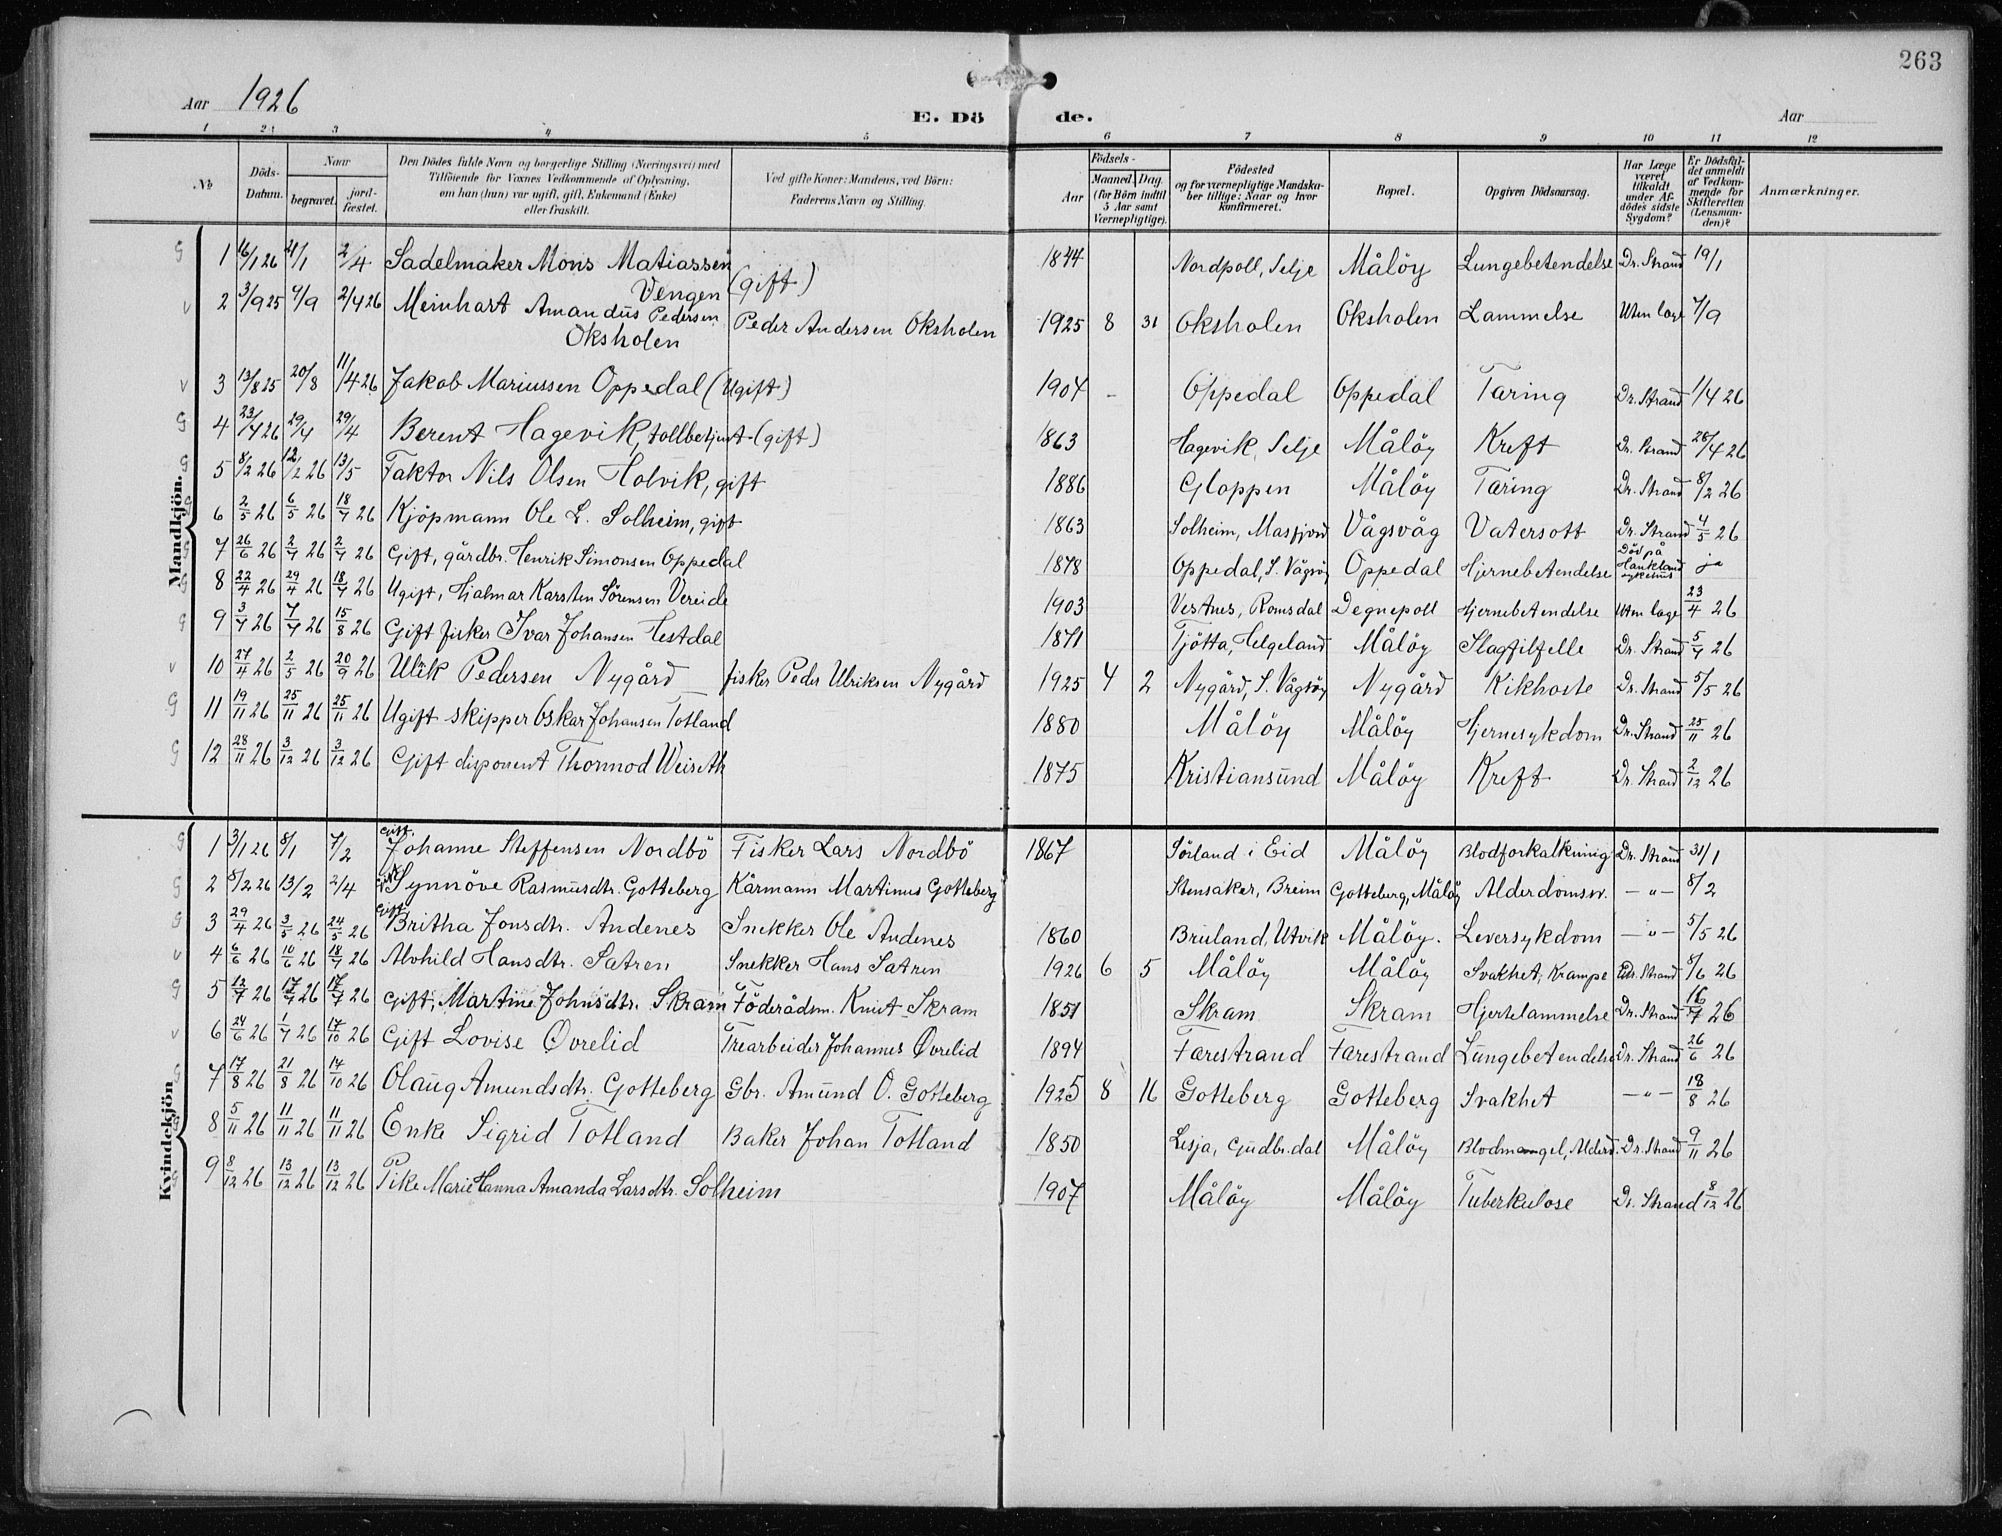 263
Aar 1926
E. Dö de.
Aar
1 2 3 4 5 6 7 8 9 10 11 12
No
Döds-Datum.
Naar begravet. jordfæstet.
Den Dödes fulde Navn og borgerlige Stilling (Næringsvei) med Tilföiende for Voxnes Vedkommende af Oplysning, om han (hun) var ugift, gift, Enkemand (Enke) eller fraskilt.
Ved gifte Koner: Mandens, ved Börn: Faderens Navn og Stilling.
Födsels- Aar Maaned Dag (for Börn indtil 5 Aar samt Værnepligtige).
Födested og for værnepligtige Mandskaber tillige: Naar og hvor konfirmeret.
Bopæl.
Opgiven Dödsaarsag.
Har Læge været tilkaldt under Afdödes sidste Sygdom?
Er Dödsfaldet anmeldt af Vedkommende for Skifteretten (Lensmanden)?
Anmærkninger.
Mandkjön.
G 1 16/1 26 21/1 2/4 Sadelmaker Mons Matiassen Vengen (gift) 1844 Nordpoll, Selje Målöy Lungebetendelse Dr. Strand 19/1
v 2 3/9 25 9/9 2/4 26 Meinhart Amandus Pedersen Oksholen Peder Andersen Oksholen 1925 8 31 Oksholen Oksholen Lammelse Uten læge 7/9
v 3 13/8 25 20/8 11/4 26 Jakob Mariussen Oppedal (Ugift) 1904 – Oppedal Oppedal Tæring Dr. Strand 1/4 26
G 4 23/4 26 29/4 29/4 Berent Hagevik, tollbetjent (gift) 1863 Hagevik, Selje Målöy Kreft Dr. Strand 28/4 26
G 5 8/2 26 12/2 26 13/5 Faktor Nils Olsen Holvik, gift 1886 Gloppen Målöy Tæring Dr. Strand 8/2 26
G 6 2/5 26 6/5 26 18/7 26 Kjöpmann Ole L. Solheim, gift 1863 Solheim, Masfjord Vågsvåg Vatersott Dr. Strand 4/5 26
G 7 26/6 26 2/7 26 2/7 26 Gift, gårdbr. Henrik Simonsen Oppedal 1878 Oppedal, S. Vågsöy Oppedal Hjernebetendelse Död på Haukland sykehus ja
G 8 22/4 26 29/4 26 18/7 26 Ugift, Hjalmar Karsten Sörensen Vereide 1903 Vestnes, Romsdal Degnepoll Hjernebetendelse Uten læge 23/4 26
G 9 3/7 26 7/7 26 15/8 26 Gift fisker Ivar Johansen Hestdal 1871 Tjötta, Helgeland Målöy Slagtilfelle Dr. Strand 5/7 26
v 10 27/4 26 2/5 26 20/9 26 Ulrik Pedersen Nygård fisker Peder Ulriksen Nygård 1925 4 2 Nygård, S. Vågsöy Nygård Kikhoste Dr. Strand 5/5 26
G 11 19/11 26 25/11 26 25/11 26 Ugift skipper Oskar Johansen Totland 1880 Målöy Målöy Hjernesykdom Dr. Strand 25/11 26
G 12 28/11 26 3/12 26 3/12 26 Gift disponent Thormod Weiseth 1875 Kristiansund Målöy Kreft Dr. Strand 2/12 26
Kvindekjön
G 1 3/1 26 8/1 7/2 Gift. Johanne Steffensen Nordbö Fisker Lars Nordbö 1867 Sörland i Eid Målöy Blodforkalkning Dr. Strand 31/1
G 2 8/2 26 13/2 2/4 Gift Synnöve Rasmusdtr. Gotteberg Kårmann Martinus Gotteberg Stensaker, Breim Gotteberg, Målöy Alderdomssv. –"– 8/2
G 3 29/4 26 3/5 26 24/5 26 Gift Britha Jonsdtr. Andenes Snekker Ole Andenes 1860 Bruland, Utvik Målöy. Leversykdom –"– 5/5 26
v 4 6/6 26 10/6 26 18/7 26 Alvhild Hansdtr. Sætren Snekker Hans Sætren 1926 6 5 Målöy Målöy Svakhet, Krampe Dr. Strand 8/6 26
G 5 13/7 26 17/7 26 17/7 26 Gift, Martine Johnsdtr. Skram Föderådsm. Knut Skram 1851 Skram Skram Hjertelammelse Dr. Strand 16/7 26
v 6 24/6 26 1/7 26 17/10 26 Gift Lovise Øvrelid Trearbeider Johannes Øvrelid 1894 Færestrand Færestrand Lungebetendelse Dr. Strand 26/6 26
G 7 17/8 26 21/8 26 14/10 26 Olaug Amundsdtr. Gotteberg Gbr. Amund O. Gotteberg 1925 8 16 Gotteberg Gotteberg Svakhet –"– 18/8 26
G 8 5/11 26 11/11 26 11/11 26 Enke Sigrid Totland Baker Johan Totland 1850 Lesja, Gudbr.dal Målöy Blodmangel, Alderd. Dr. Strand 9/11 26
G 9 8/12 26 13/12 26 13/12 26 Pike Marie Hanna Amanda Larsdtr. Solheim 1907 Målöy Målöy Tuberkulose Dr. Strand 8/12 26